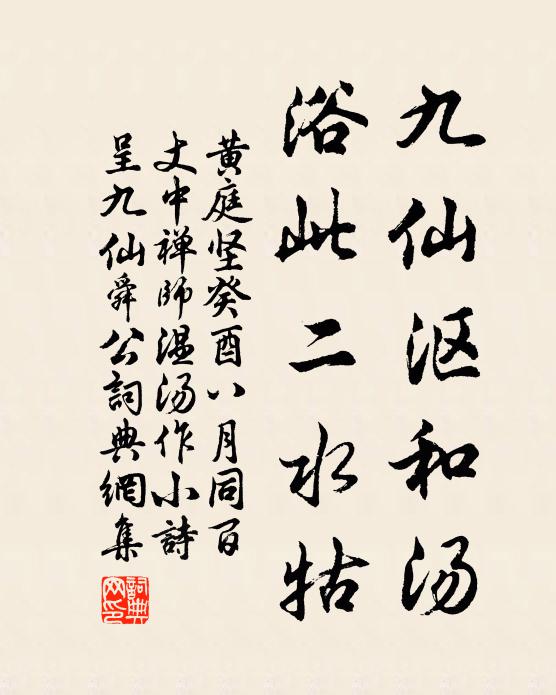 九仙沤和汤
浴此二水牯
黄庭坚癸酉八月同百
丈中禅師温汤作小詩
呈九仙舜公詞典網集
詞典网印